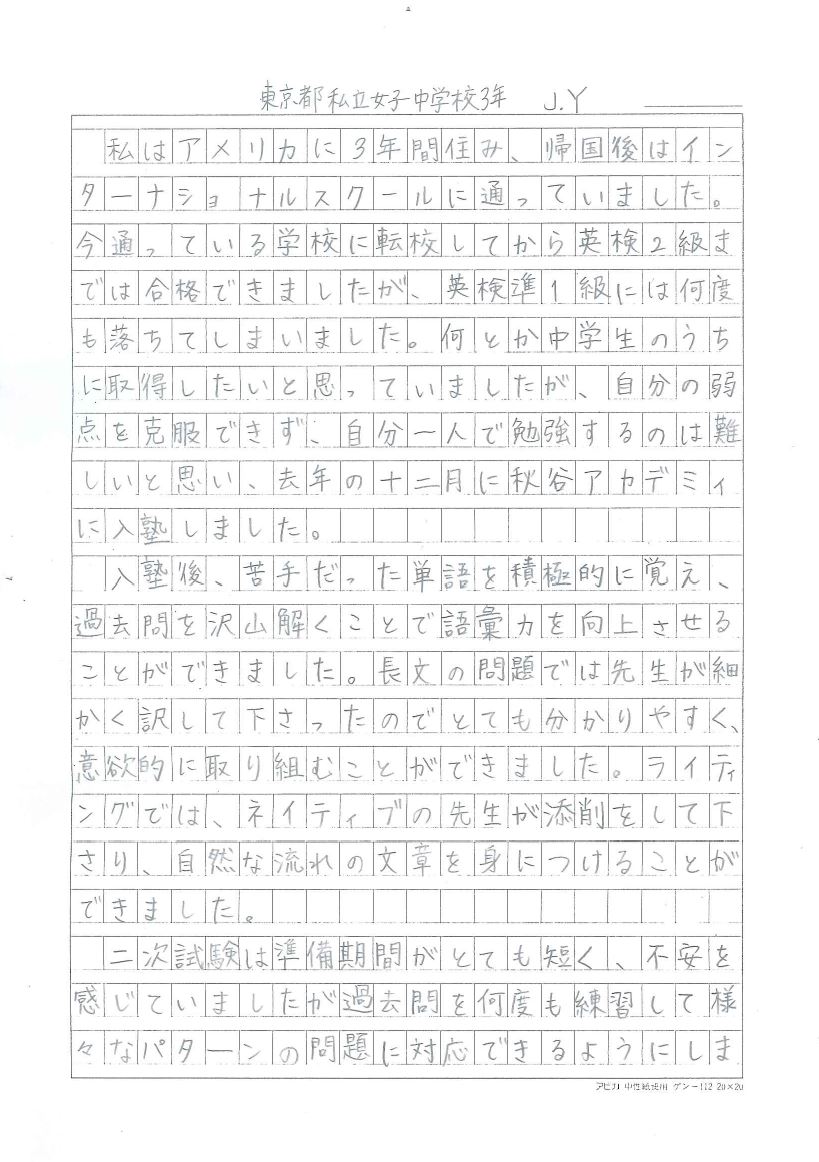 東京都私立女子中学校3年 J.Y
私はアメリカに3年間住み、帰国後はイン
ターナショナルスクールに通っていました。
今通っている学校に転校してから英検2級ま
では合格できましたが、英検準1級には何度
も落ちてしまいました。何とか中学生のうち
に取得したいと思っていましたが、自分の弱
点を克服できず、自分一人で勉強するのは難
しいと思い、去年の十二月に秋谷アカデミィ
に入塾しました。
入塾後、苦手だった単語を積極的に覚え、
過去問を沢山解くことで語彙力を向上させる
ことができました。長文の問題では先生が細
かく訳して下さったのでとても分かりやすく、
意欲的に取り組むことができました。ライティ
ングでは、ネイティブの先生が添削をして下
さり、自然な流れの文章を身につけることが
できました。
二次試験は準備期間がとても短く、不安を
感じていましたが過去問を何度も練習して様
々なパターンの問題に対応できるようにしま
アピカ 中性紙使用 ゲンー112 20×20